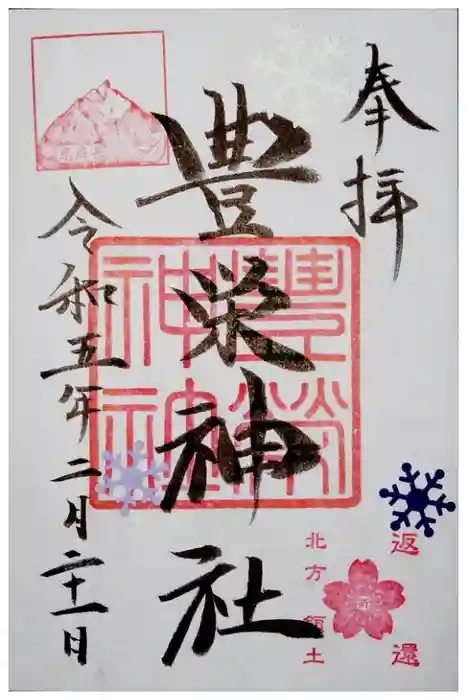 奉拝
豊栄神社
令和五年二月二十一日
北方領土
返還